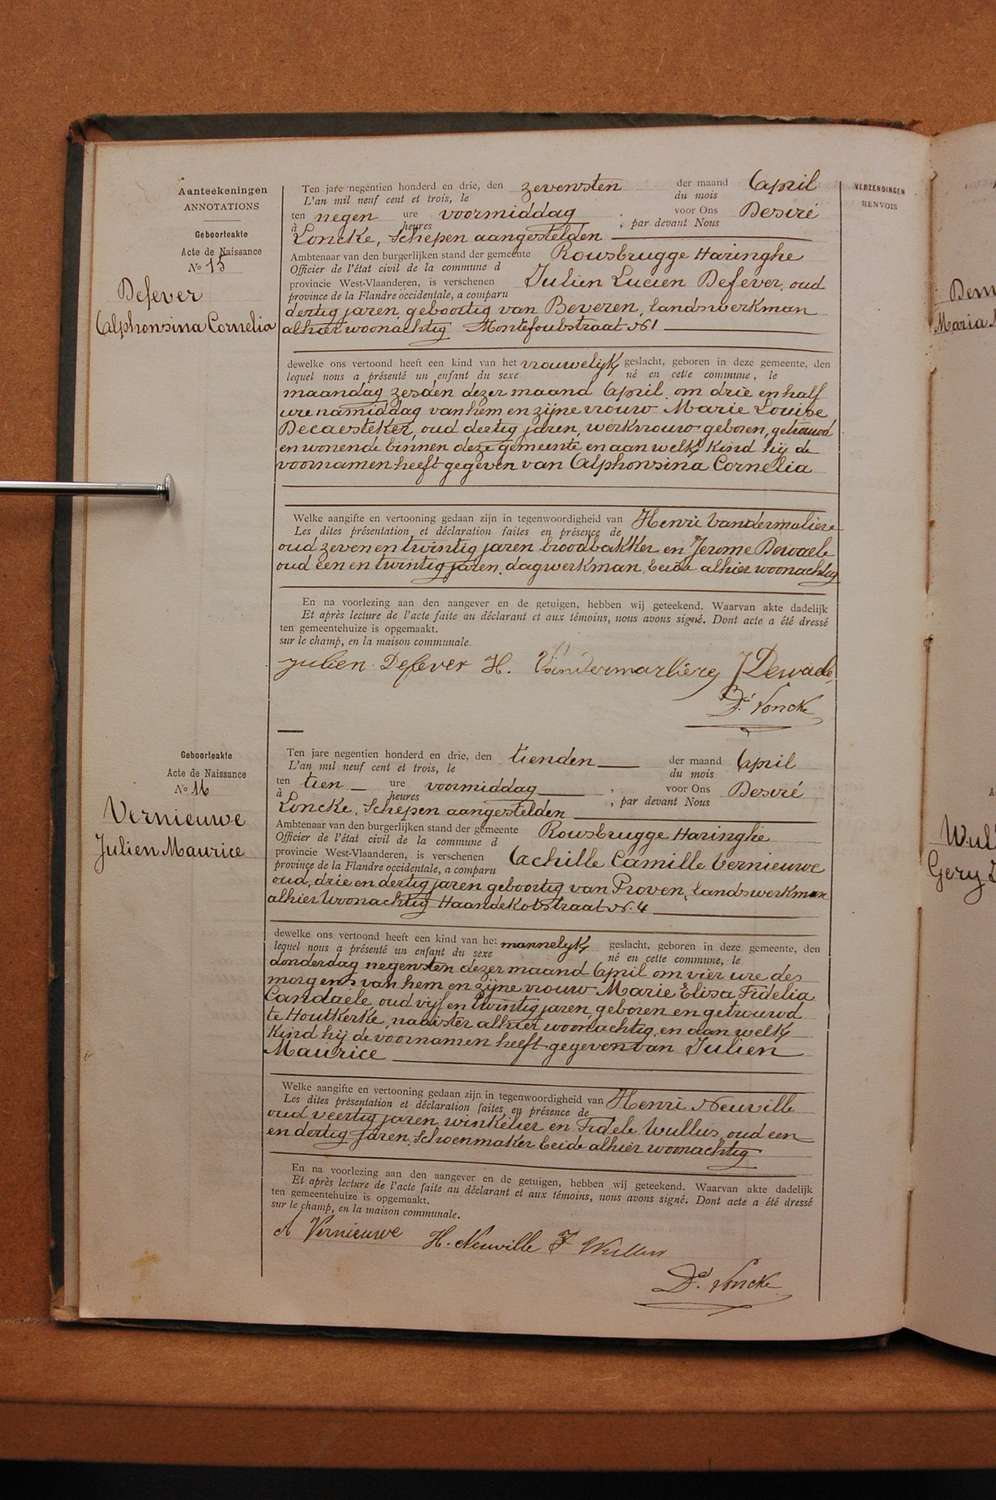 Aanteekeningen
ANNOTATIONS
VERZENDINGEN
RENVOIS
Geboorteakte
Acte de Naissance
No 15
Defever
Alphonsina Cornelia
Ten jare negentien honderd en drie, den zevensten der maand April
L'an mil neuf cent et trois, le du mois
ten negen ure voormiddag , voor Ons Desiré
à heures , par devant Nous
Loncke, Schepen aangestelden
Ambtenaar van den burgerlijken stand der gemeente Rousbrugge Haringhe
Officier de l'état civil de la commune d
provincie West-Vlaanderen, is verschenen Julien Lucien Defever, oud
province de la Flandre occidentale, a comparu
dertig jaren, geboortig van Beveren, landswerkman
alhier woonachtig Montefoubstraat No 1
dewelke ons vertoond heeft een kind van het vrouwelyk geslacht, geboren in deze gemeente, den
lequel nous a présenté un enfant du sexe né en cette commune, le
maandag zesden dezer maand April om drie en half
ure namiddag van hem en zijne vrouw Marie Louise
Decaesteker, oud dertig jaren, werkvrouw geboren, getrouwd
en wonende binnen deze gemeente en aan welk kind hij de
voornamen heeft gegeven van Alphonsina Cornelia
Welke aangifte en vertooning gedaan zijn in tegenwoordigheid van Henri Vandermaliere
Les dites présentation et déclaration faites en présence de
oud zeven en twintig jaren broodbakker en Jerome Dewaele
oud een en twintig jaren, dagwerkman, beide alhier woonachtig
En na voorlezing aan den aangever en de getuigen, hebben wij geteekend. Waarvan akte dadelijk
Et après lecture de l'acte faite au déclarant et aux témoins, nous avons signé. Dont acte a été dressé
ten gemeentehuize is opgemaakt.
sur le champ, en la maison communale.
Julien Defever H. Vandermarliere J Dewaele
Dé Loncke
Geboorteakte
Acte de Naissance
No 16
Vernieuwe
Julien Maurice
Ten jare negentien honderd en drie, den tienden der maand April
L'an mil neuf cent et trois, le du mois
ten tien ure voormiddag , voor Ons Desiré
à heures , par devant Nous
Loncke, Schepen aangestelden
Ambtenaar van den burgerlijken stand der gemeente Rousbrugge Haringhe
Officier de l'état civil de la commune d
provincie West-Vlaanderen, is verschenen Achille Camille Vernieuwe
province de la Flandre occidentale, a comparu
oud, drie en dertig jaren geboortig van Proven, landswerkman
alhier woonachtig Haandekotstraat Nr. 4
dewelke ons vertoond heeft een kind van het mannelyk geslacht, geboren in deze gemeente, den
lequel nous a présenté un enfant du sexe né en cette commune, le
donderdag negensten dezer maand April om vier ure des
morgens van hem en zijne vrouw Marie Elisa Fidelia
Candaele oud vijf en twintig jaren, geboren en getrouwd
te Houtkerke, naaister alhier woonachtig en aan welk
kind hij de voornamen heeft gegeven van Julien
Maurice
Welke aangifte en vertooning gedaan zijn in tegenwoordigheid van Henri Neuville
Les dites présentation et déclaration faites en présence de
oud veertig jaren, winkelier en Fidele Wullus, oud een
en dertig jaren, Schoenmaker beide alhier woonachtig
En na voorlezing aan den aangever en de getuigen, hebben wij geteekend. Waarvan akte dadelijk
Et après lecture de l'acte faite au déclarant et aux témoins, nous avons signé. Dont acte a été dressé
ten gemeentehuize is opgemaakt.
sur le champ, en la maison communale.
A Vernieuwe H. Neuville F Wullus
Dé Loncke
Maria
Wull
Gery